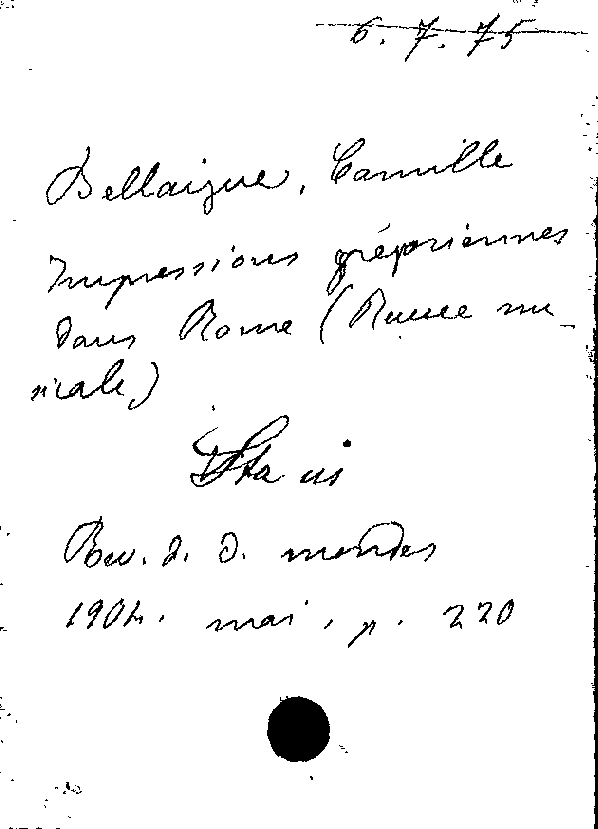 6. 7. 75
Bellaigue, Camille
Impressions grégoriennes
dans Rome (Revue mu-
sicale)
Rev. d. d. mondes
1904. mai, p. 220